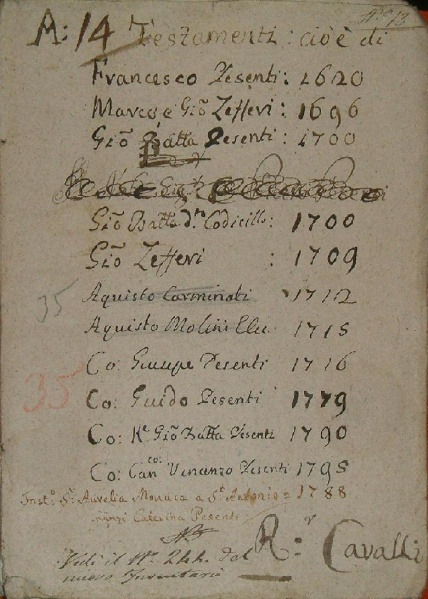 N.° 13
A: 14 Testamenti: cioè di
Francesco Pesenti: 1620
Marco e Giō Zefferi: 1696
Giō Batta Pesenti: 1700
Giō Batta d.tto Codicillo: 1700
Giō Zefferi : 1709
Aquisto Carminati 1712
35
Aquisto Molini Elie 1715
Co: Giusepe Pesenti 1716
35
Co: Guido Pesenti 1779
Co: K.r Giō Batta Pesenti 1790
Co: Can.co: Vincenzo Pesenti 1795
Inst.o S.r Aurelia Monaca a S.t Antonio = 1788
Caterina Pesenti
Vedi il N.° 244. dal
nuovo Inventario
R.r: Cavalli